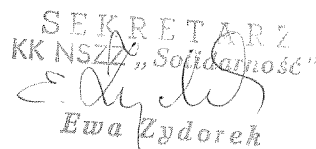 SEKRETARZ
KK NSZZ „Solidarność”
E. Zydorek
Ewa Zydorek